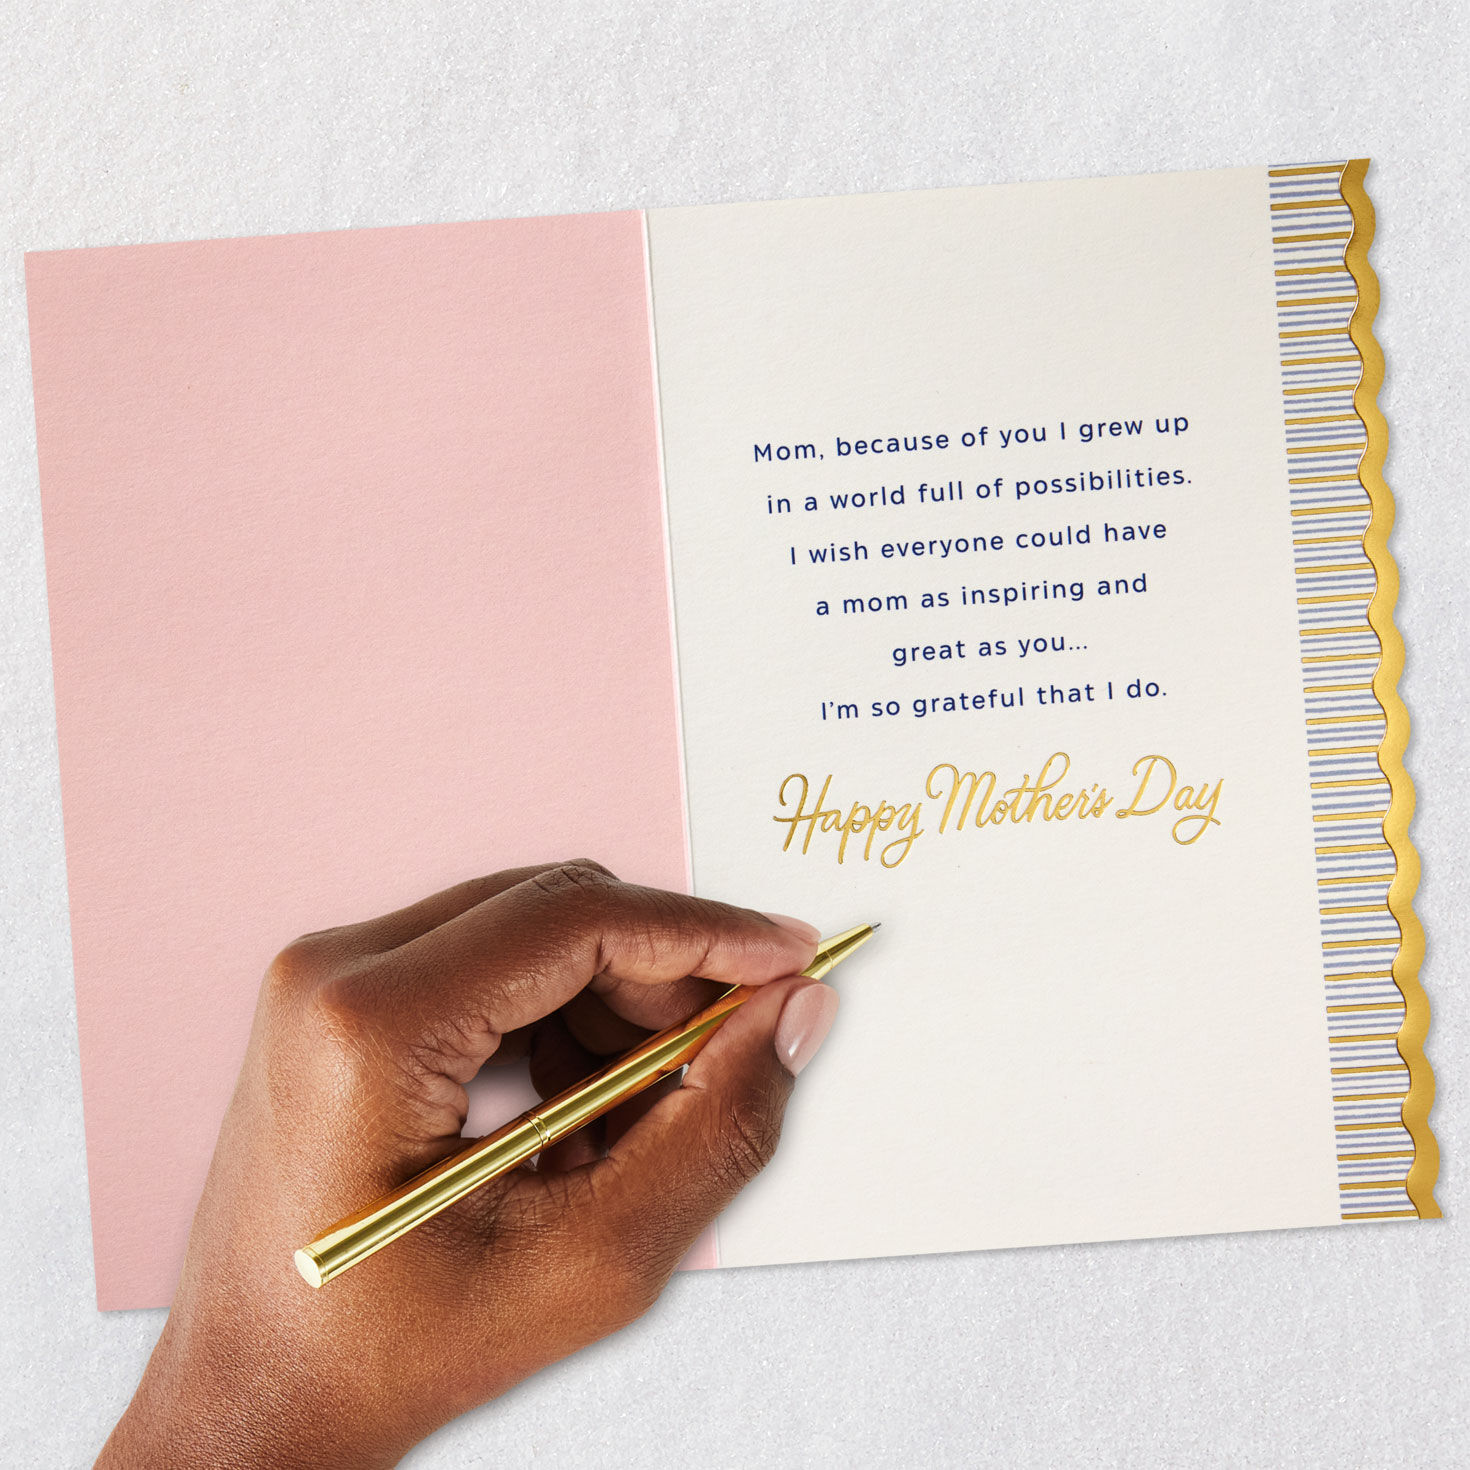 Mom, because of you I grew up
in a world full of possibilities.
I wish everyone could have
a mom as inspiring and
great as you...
I'm so grateful that I do.
Happy Mother's Day